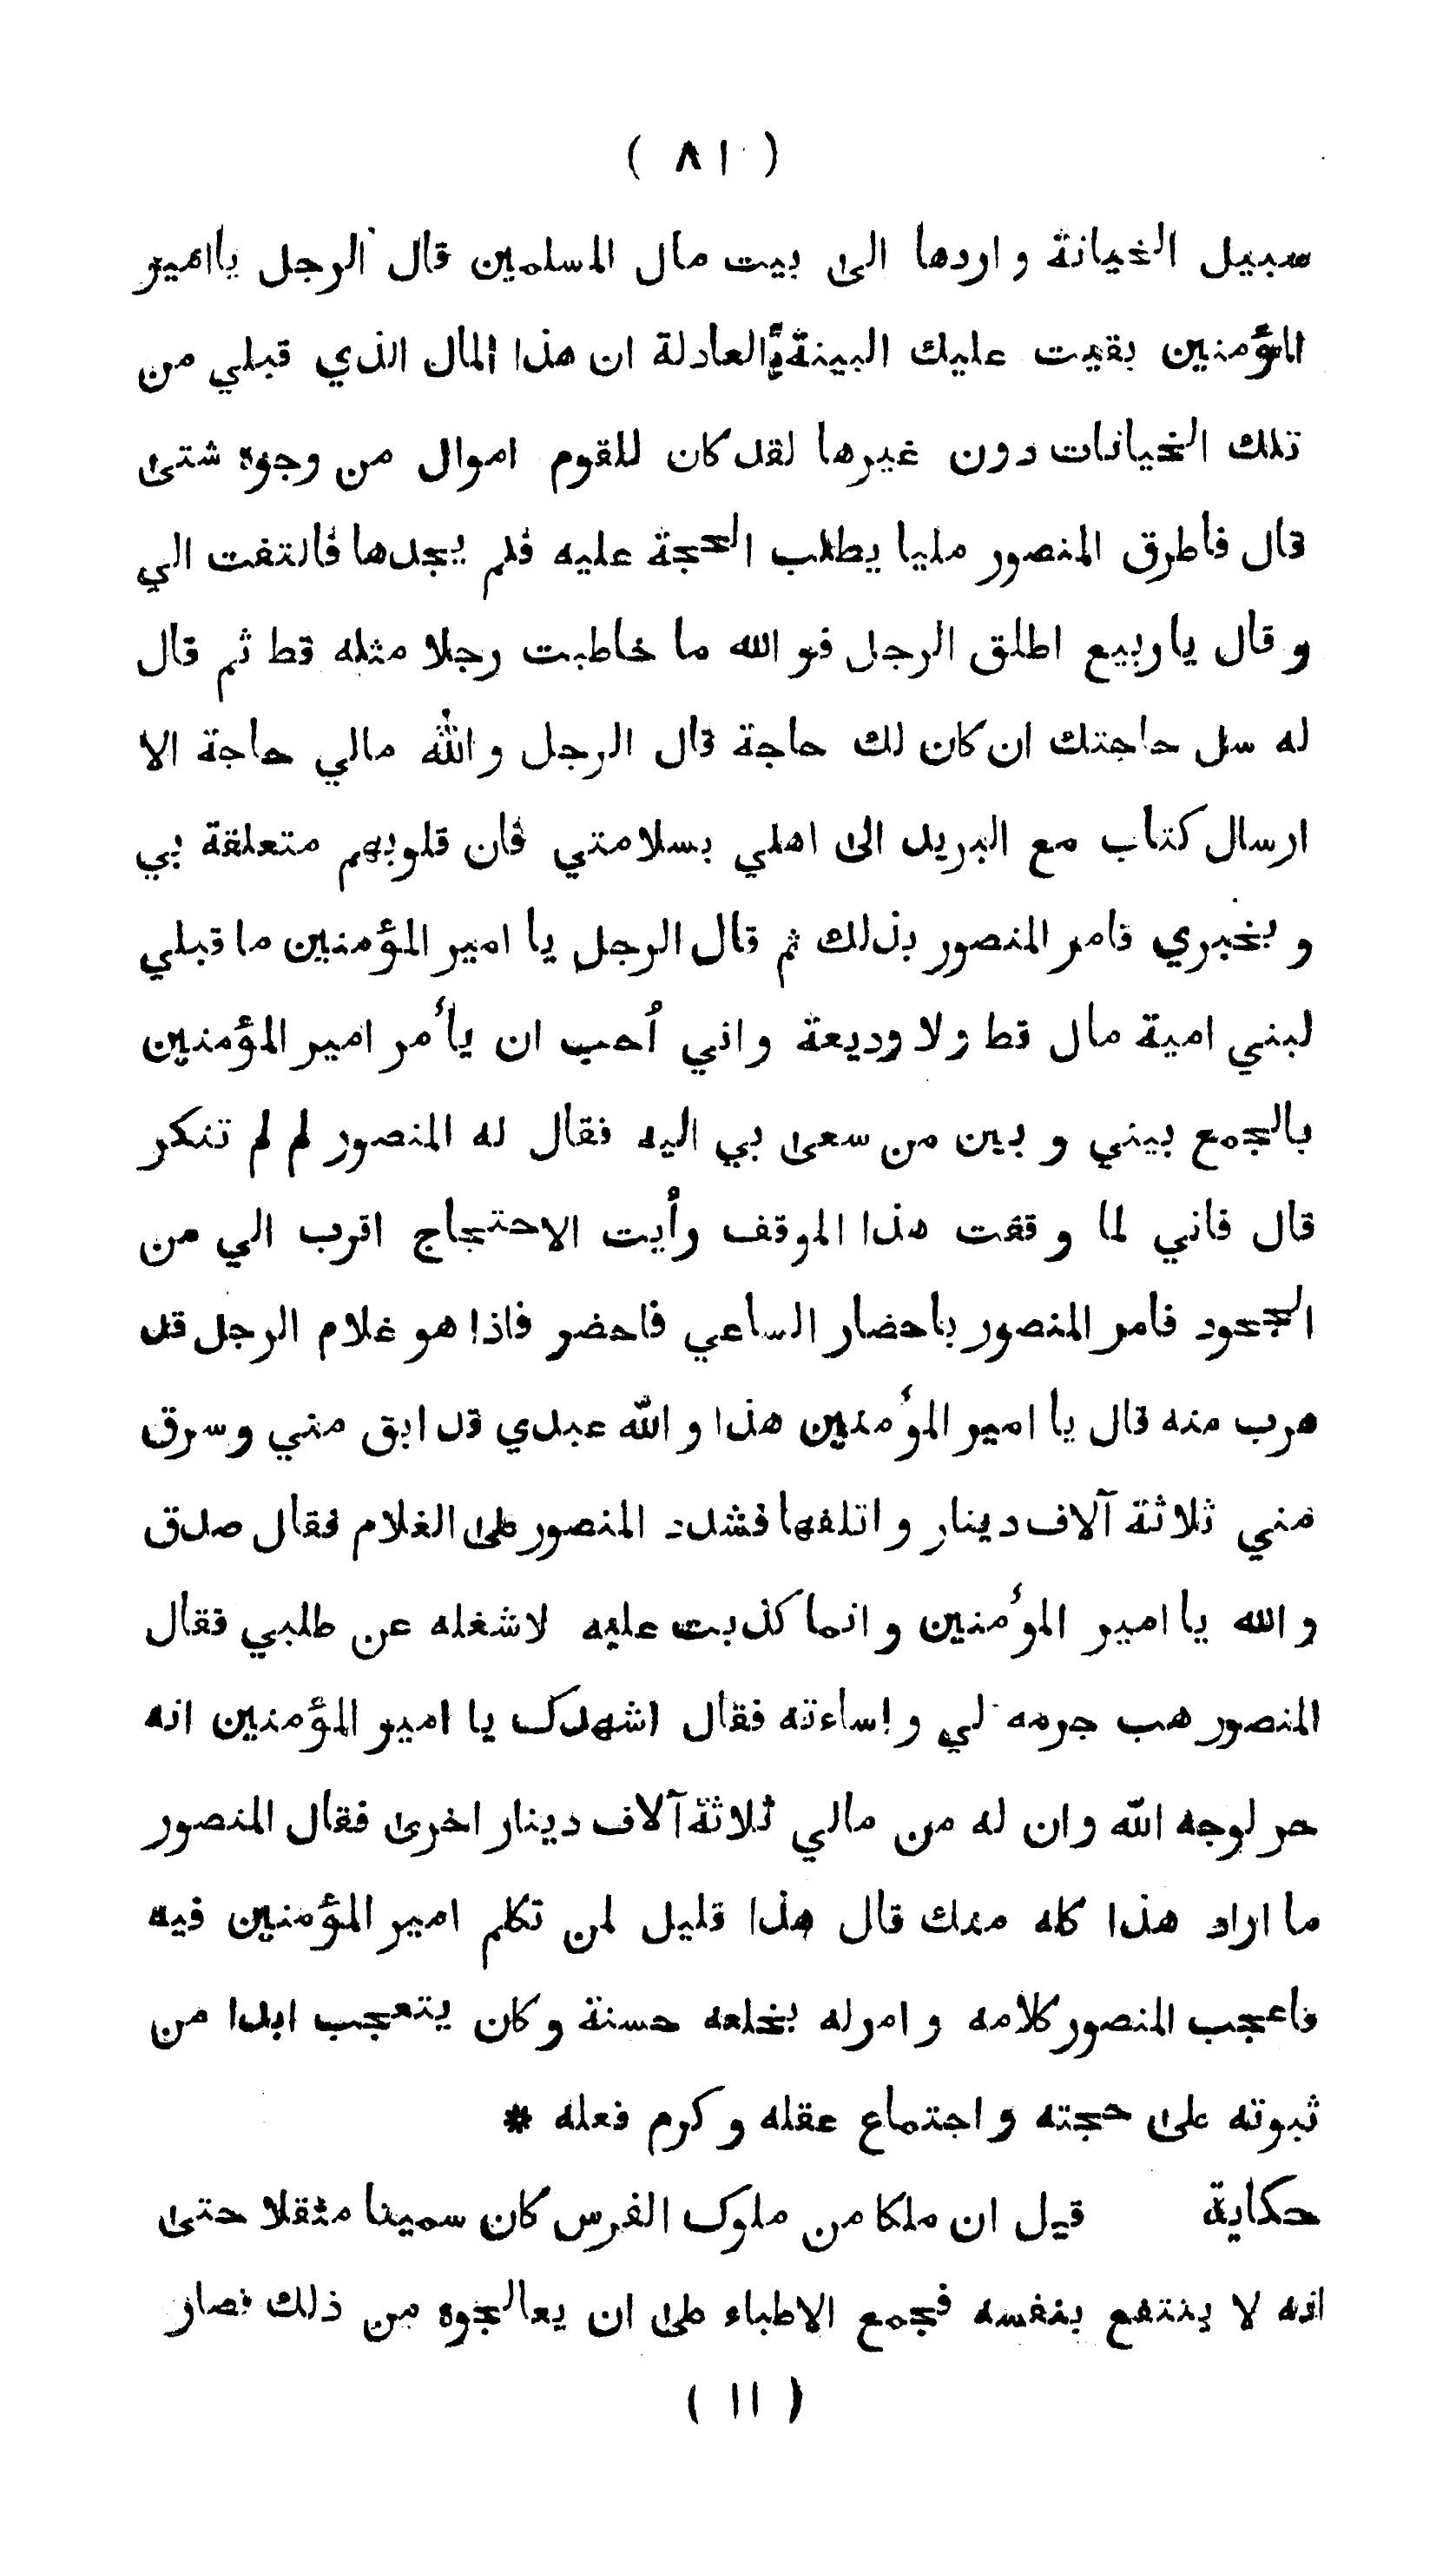 ( ٨١ )
سبيل الخيانة و اردها الى بيت مال المسلمين قال الرجل ياامير
المؤمنين بقيت عليك البينة العادلة ان هذا المال الذي قبلي من
تلك الخيانات دون غيرها لقد كان للقوم اموال من وجوه شتى
قال فأطرق المنصور مليا يطلب الحجة عليه فلم يجدها فالتفت الي
و قال ياربيع اطلق الرجل فو الله ما خاطبت رجلا مثله قط ثم قال
له سل حاجتك ان كان لك حاجة قال الرجل و الله مالي حاجة الا
ارسال كتاب مع البريد الى اهلي بسلامتي فان قلوبهم متعلقة بي
و بخبري فامر المنصور بذلك ثم قال الرجل يا امير المؤمنين ما قبلي
لبني امية مال قط ولا وديعة و اني أحب ان يأمر امير المؤمنين
بالجمع بيني و بين من سعى بي اليه فقال له المنصور لم لم تنكر
قال فاني لما وقفت هذا الموقف رأيت الاحتجاج اقرب الي من
الجحود فامر المنصور باحضار الساعي فاحضر فاذا هو غلام الرجل قد
هرب منه قال يا امير المؤمنين هذا و الله عبدي قد ابق مني و سرق
مني ثلاثة آلاف دينار و اتلفها فشدد المنصور على الغلام فقال صدق
و الله يا امير المؤمنين و انما كذبت عليه لاشغله عن طلبي فقال
المنصور هب جرمه لي و اساءته فقال اشهدك يا امير المؤمنين انه
حر لوجه الله وان له من مالي ثلاثة آلاف دينار اخرى فقال المنصور
ما اراد هذا كله منك قال هذا قليل لمن تكلم امير المؤمنين فيه
فاعجب المنصور كلامه و امر له بخلعه حسنة و كان يتعجب ابدا من
ثبوته على حجته و اجتماع عقله و كرم فعله *
حكاية قيل ان ملكا من ملوك الفرس كان سمينا مثقلا حتى
انه لا ينتفع بنفسه فجمع الاطباء على ان يعالجوه من ذلك فصار
( ١١ )